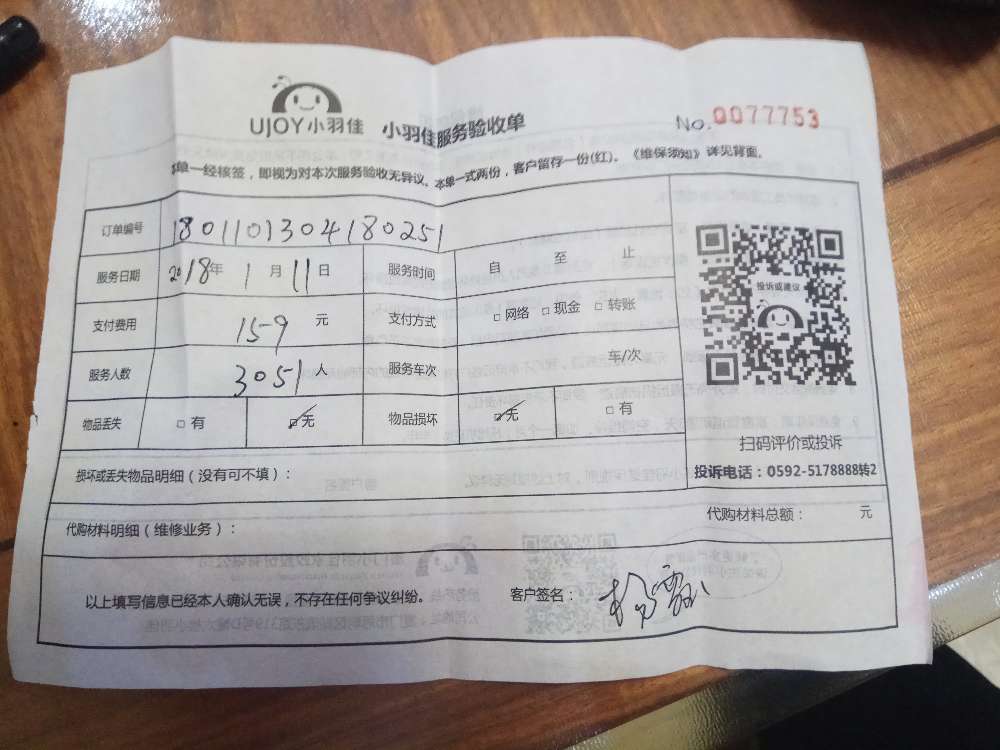 UJOY小羽佳 小羽佳服务验收单 No. 0077753
单一经核签，即视为对本次服务验收无异议。本单一式两份，客户留存一份(红)。《维保须知》详见背面。
订单编号 1801101304180251
服务日期 2018年 1月 11日 服务时间 自 至 止
支付费用 159 元 支付方式 □网络 □现金 □转账
服务人数 3051 人 服务车次 车/次
物品丢失 □有 ☑无 物品损坏 ☑无 □有
投诉或建议
扫码评价或投诉
投诉电话：0592-5178888转2
损坏或丢失物品明细（没有可不填）：
代购材料明细（维修业务）： 代购材料总额： 元
以上填写信息已经本人确认无误，不存在任何争议纠纷。 客户签名：